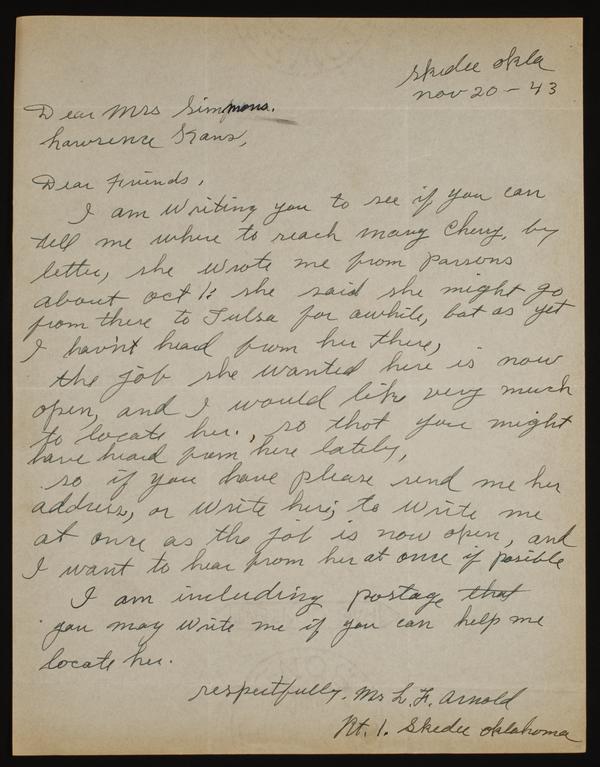 Skedee Okla
Nov 20 - 43
Dear Mrs Simmons.
Lawrence Kans,
Dear Friends,
I am writing you to see if you can
tell me where to reach Mary Cheny, by
letter, she wrote me from Parsons
about Oct 1: she said she might go
from there to Tulsa for awhile, but as yet
I havint head from her there,
the job she wanted here is now
open, and I would like very much
to locate her., so that you might
have heard from here lately,
so if you have please send me her
address, or write her; to write me
at once as the job is now open, and
I want to hear from her at once if posible
I am including postage that
you may write me if you can help me
locate her.
respectfully. Mr L. F. Arnold
Rt. 1. Skedee Oklahoma